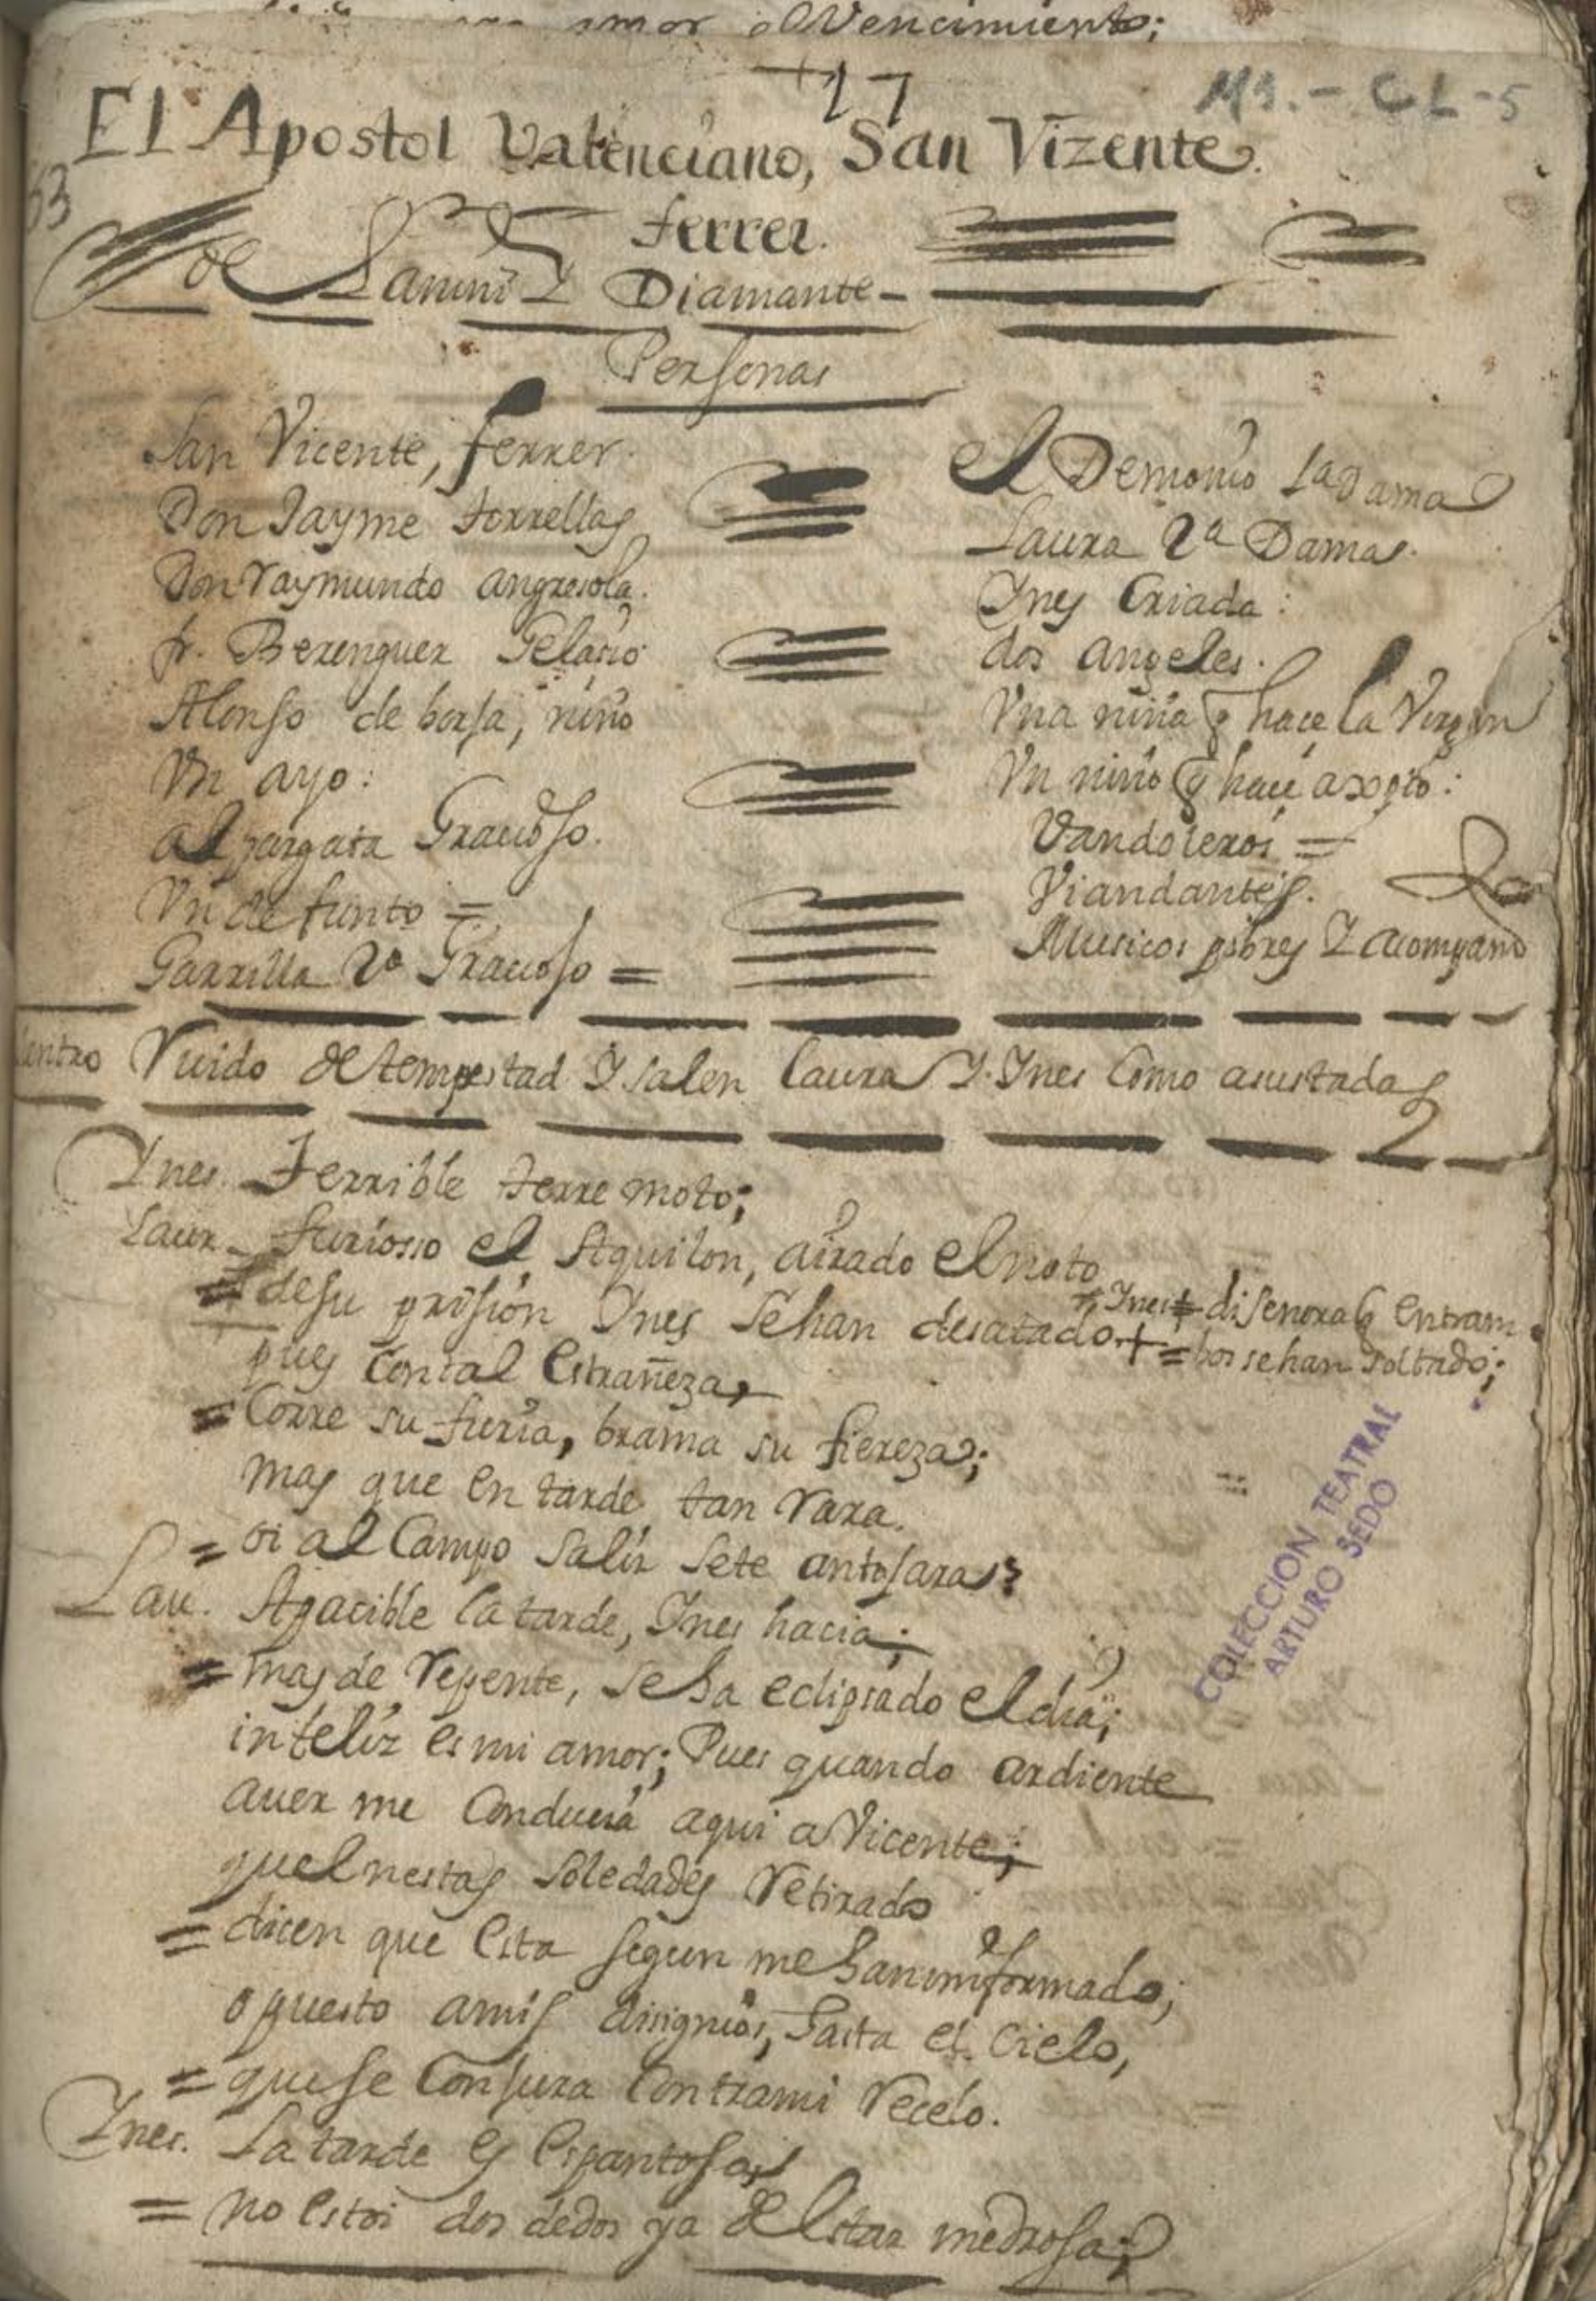 amor o Vencimiento;
17
Ms. - CL-5
El Apostol Valenciano, San Vizente
63
ferrer.
de Lanini Y Diamante
Personas
San Vicente, ferrer.
Don Jayme torrellas
Don raymundo angresola.
fr. Berenguer Gelasio
Alonso de borja, niño
Vn ayo:
alpargata Gracioso.
Vn defunto =
Garrilla 2º Gracioso =
el Demonio 1ª Dama
Laura 2ª Dama
Ynes Criada:
dos angeles.
Vna niña q hace la Virgen
Vn niño q hace
Vandoleros =
Viandantes.
Musicos pobres Y acompanto
dentro Ruido de tempestad Y salen laura Y Ynes Como asustadas
Ynes. Terrible terremoto;
Laur. furiosso el Aquilon, airado el noto
= desu prision Ynes se han desatado +
+ Ynes = di señora q entram
= bos sehan soltado;
pues Contal estrañeza,
= Corre su furia, brama su fiereza;
mas que en tarde tan rara.
= oi al Campo salir sete antojara?
Lau. Apacible la tarde, Ynes hacia;
= mas de repente, se ha eclipsado el dia;
infeliz es mi amor; Pues quando ardiente
auer me Conducia aqui a Vicente;
quelnestas soledades retirado
= dicen que esta segun me han informado;
opuesto amis disignios, hasta el Cielo,
= quese Conjura Contrami recelo.
Ynes. La tarde es espantosa;
= no estoi dos dedos ya de estar medrosa;
COLECCION TEATRAL
ARTURO SEDO